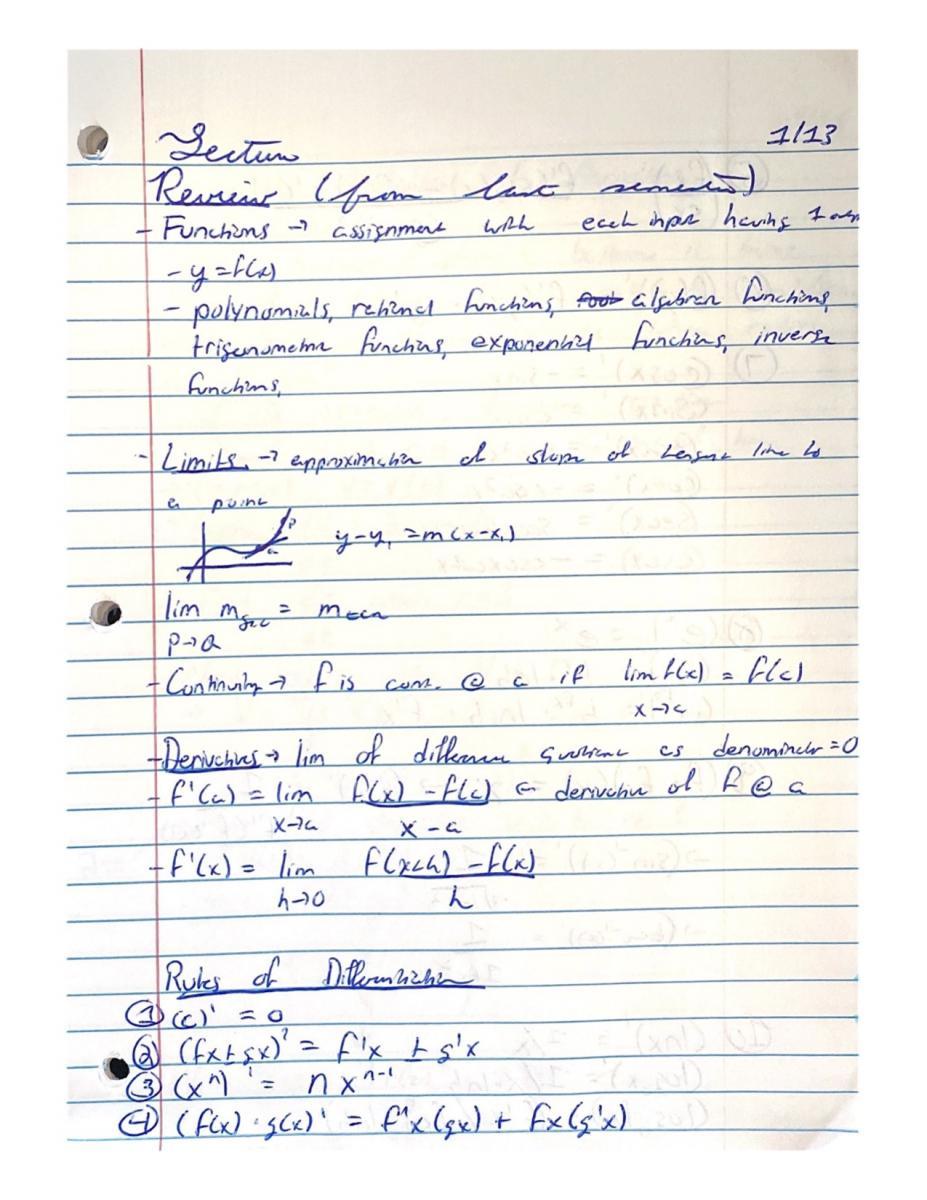 Lecture 1/13
Review (from last semester)
- Functions → assignment with each input having 1 outp
- y = f(x)
- polynomials, rational functions, algebraic functions,
trigonometric functions, exponential functions, inverse
functions,
- Limits → approximation of slope of tangent line to
a point
P
a
y-y₁ = m(x-x₁)
lim m_sec = m_tan
P→Q
- Continuity → f is cont. @ a if lim f(x) = f(a)
x→a
- Derivatives → lim of difference quotient as denominator = 0
- f'(a) = lim f(x) - f(a) ← derivative of f @ a
x→a x-a
- f'(x) = lim f(x+h) - f(x)
h→0 h
Rules of Differentiation
① (c)' = 0
② (fx ± gx)' = f'x ± g'x
③ (xⁿ)' = n xⁿ⁻¹
④ (f(x) · g(x)' = f'x(gx) + fx(g'x)